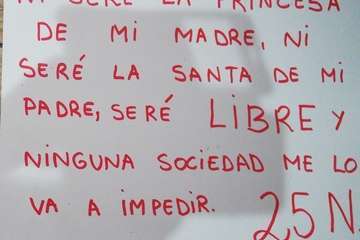 NI SERÉ LA PRINCESA
DE MI MADRE, NI
SERÉ LA SANTA DE MI
PADRE, SERÉ LIBRE Y
NINGUNA SOCIEDAD ME LO
VA A IMPEDIR. 25 N